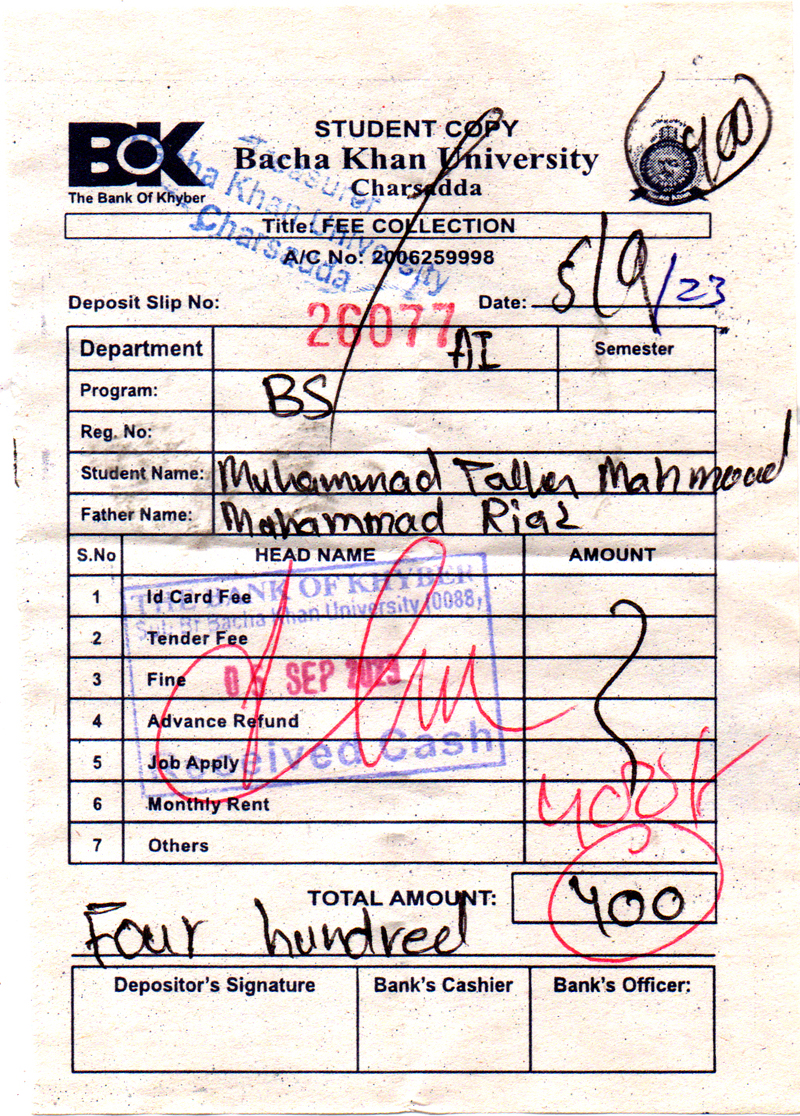 400
STUDENT COPY
BOK
Bacha Khan University
Charsadda
The Bank Of Khyber
Treasurer
Bacha Khan University
Charsadda
Title: FEE COLLECTION
A/C No: 2006259998
Deposit Slip No: 26077 Date: 5/9/23
Department AI Semester
Program: BS
Reg. No:
Student Name: Muhammad Talha Mahmood
Father Name: Mohammad Riaz
S.No HEAD NAME AMOUNT
THE BANK OF KHYBER
1 Id Card Fee
Bacha Khan University (0088)
2 Tender Fee
3 Fine
05 SEP 2023
4 Advance Refund
5 Job Apply
Received Cash
6 Monthly Rent
7 Others
TOTAL AMOUNT: 400
Four hundred
Depositor's Signature Bank's Cashier Bank's Officer: